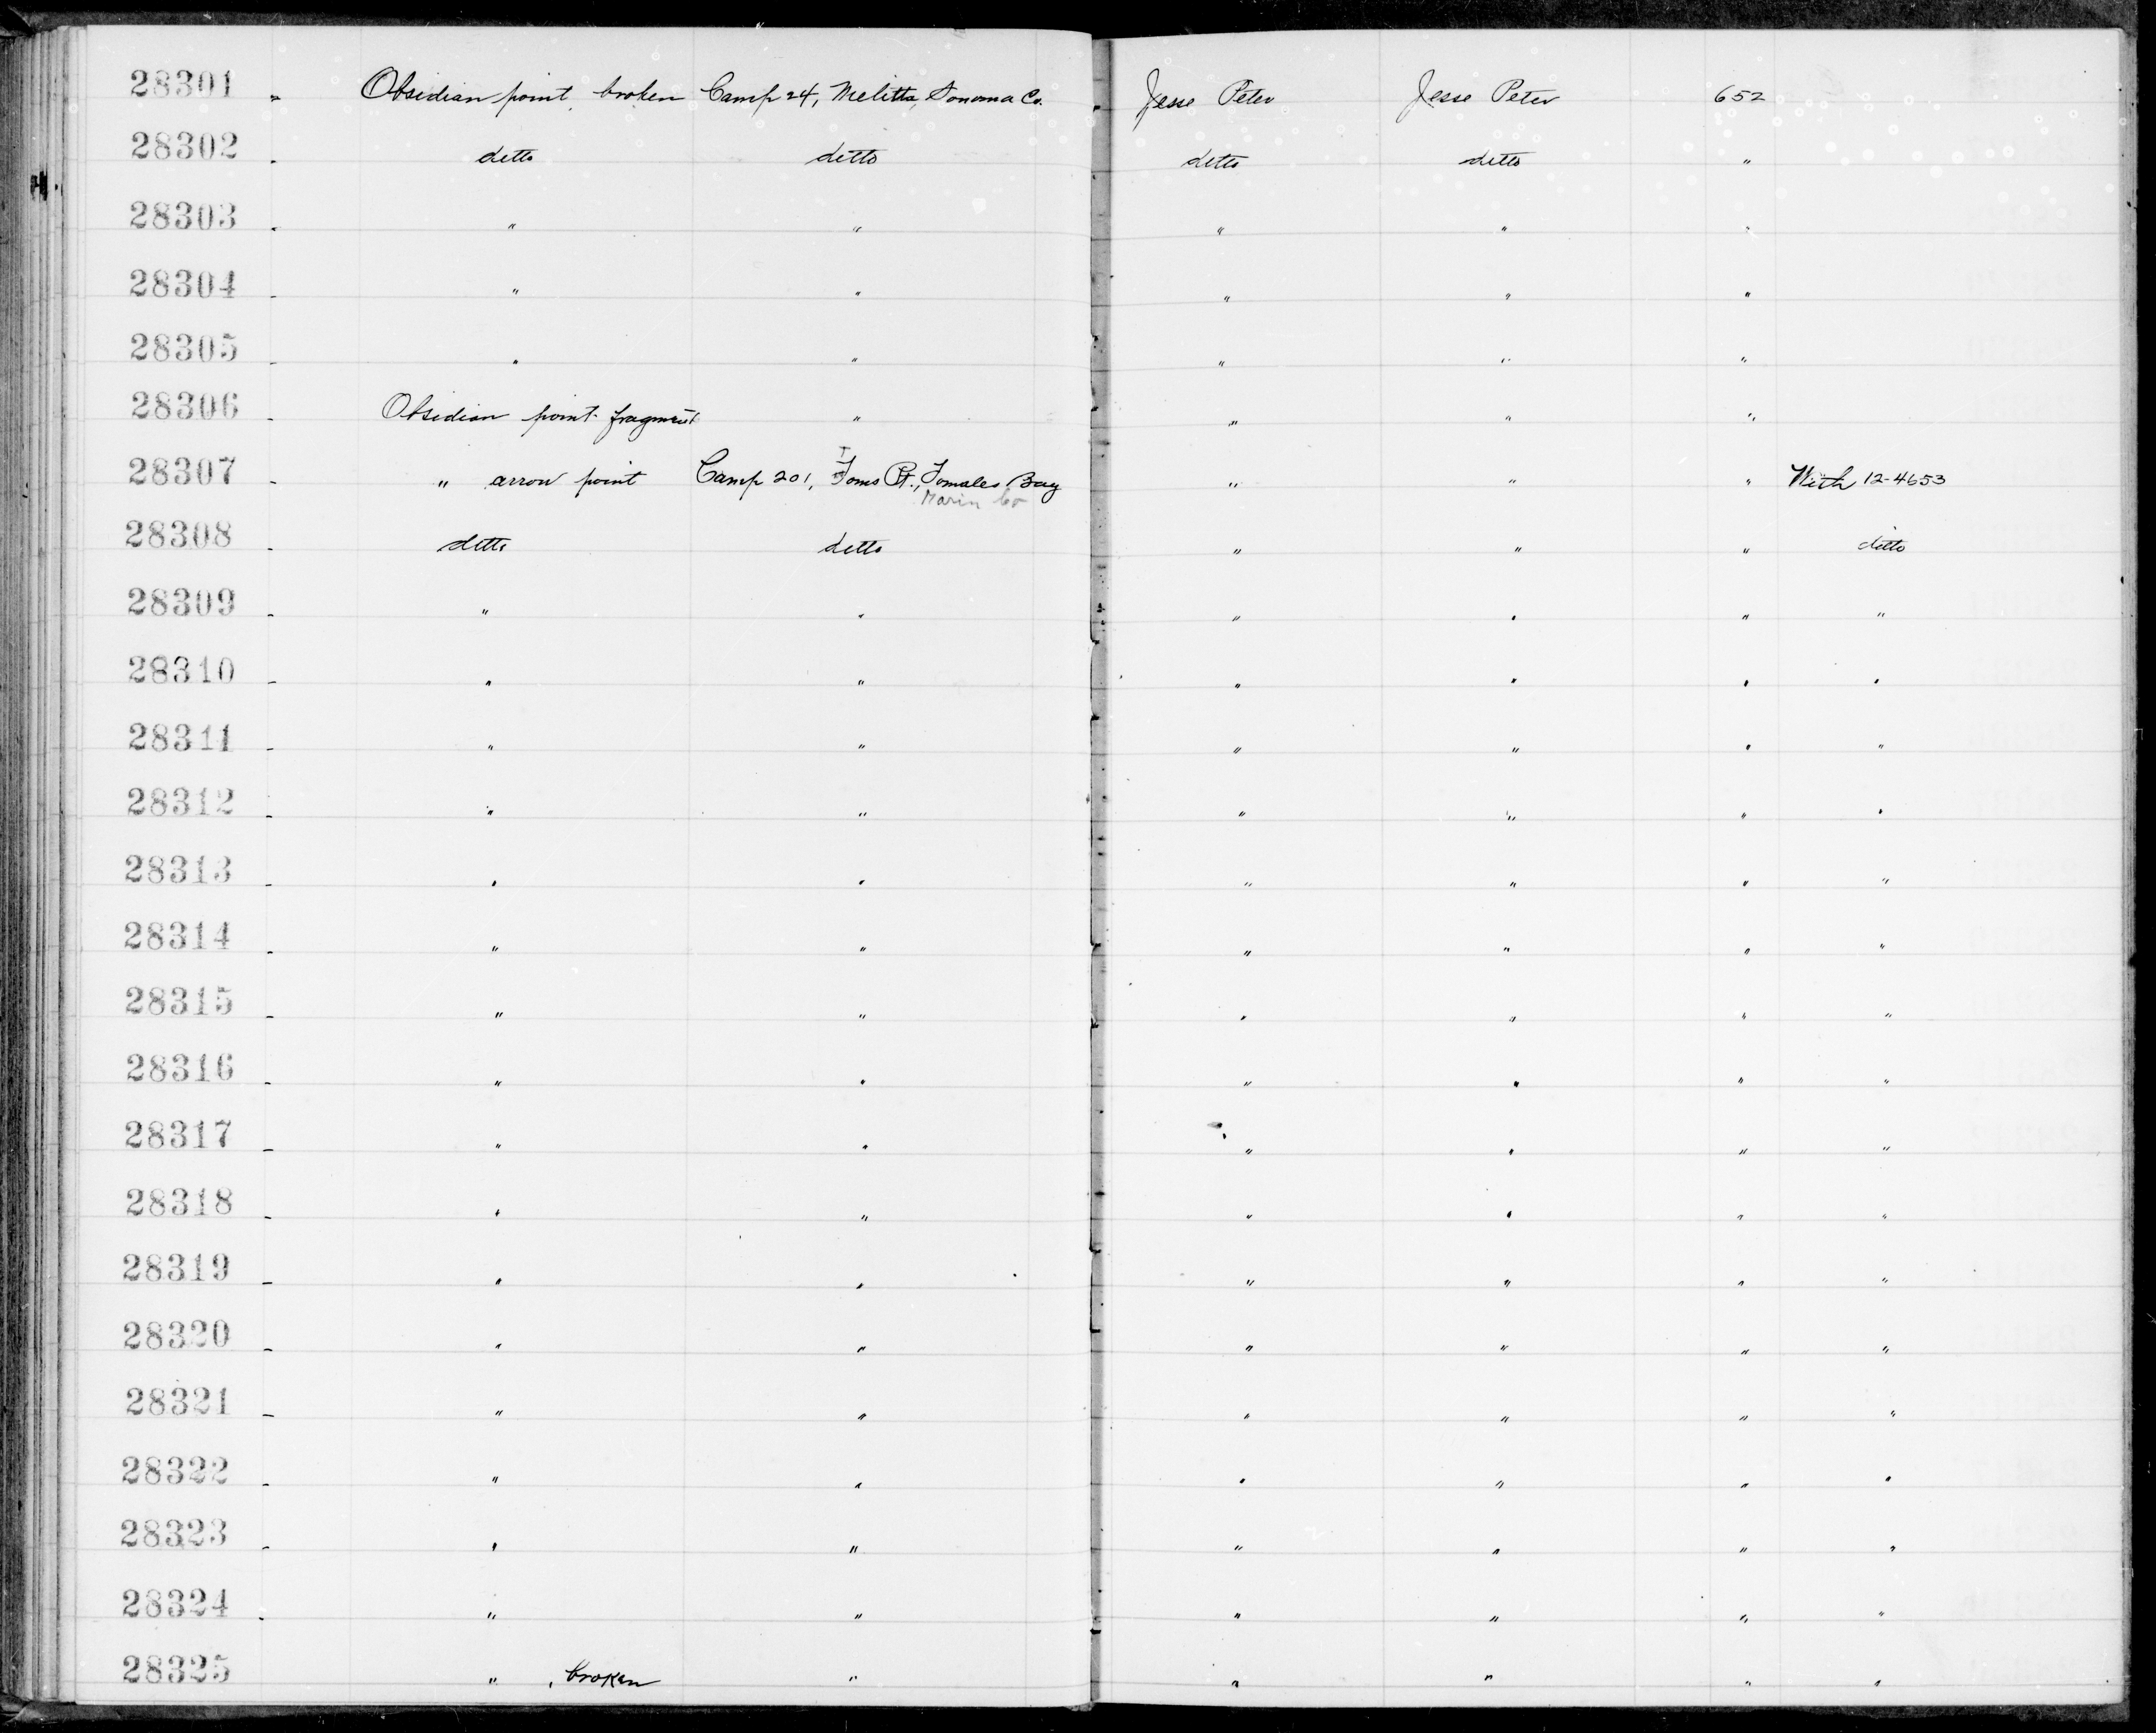 28301 - Obsidian point, broken Camp 24, Melitta Sonoma Co. Jesse Peter Jesse Peter 652
28302 - ditto ditto ditto ditto "
28303 - " " " " "
28304 - " " " " "
28305 - " " " " "
28306 - Obsidian point fragment " " " "
28307 - " arrow point Camp 201, Toms Pt., Tomales Bay " " " With 12-4653
Marin Co
28308 - ditto ditto " " " ditto
28309 - " " " " " "
28310 - " " " " " "
28311 - " " " " " "
28312 - " " " " " "
28313 - " " " " " "
28314 - " " " " " "
28315 - " " " " " "
28316 - " " " " " "
28317 - " " " " " "
28318 - " " " " " "
28319 - " " " " " "
28320 - " " " " " "
28321 - " " " " " "
28322 - " " " " " "
28323 - " " " " " "
28324 - " " " " " "
28325 " , broken " " " " "